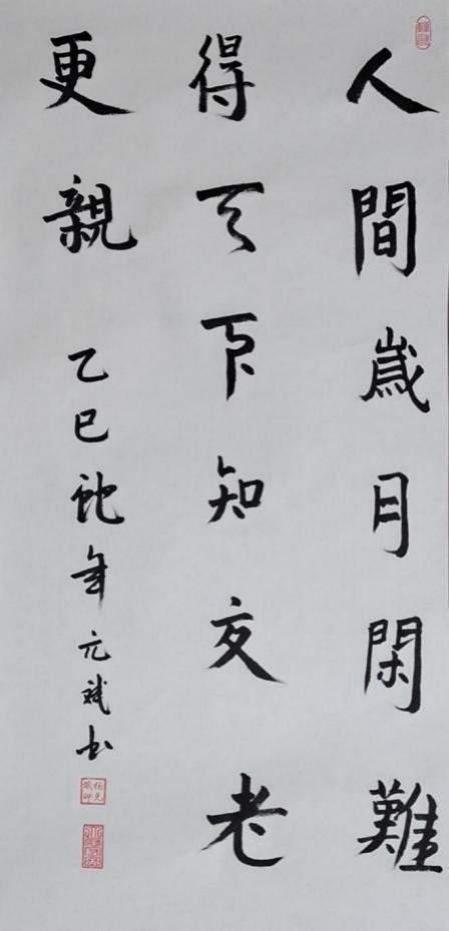 人間歲月閑難
得天下知交老
更親
乙巳蛇年元斌書